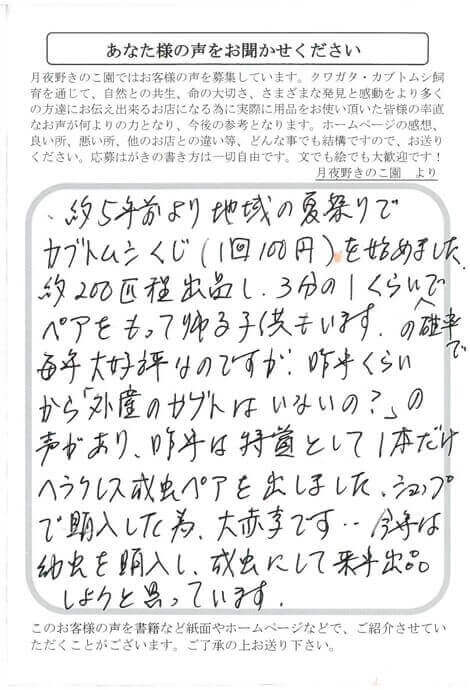 あなた様の声をお聞かせください
月夜野きのこ園ではお客様の声を募集しています。クワガタ・カブトムシ飼
育を通じて、自然との共生、命の大切さ、さまざまな発見と感動をより多く
の方達にお伝え出来るお店になる為に実際に用品をお使い頂いた皆様の率直
なお声が何よりの力となり、今後の参考となります。ホームページの感想、
良い所、悪い所、他のお店との違い等、どんな事でも結構ですので、お送り
ください。応募はがきの書き方は一切自由です。文でも絵でも大歓迎です！
月夜野きのこ園　より
、約5年前より地域の夏祭りで
カブトムシくじ(1回100円)を始めました。
約200匹程出品し、3分の1くらいの確率で
ペアをもってゆる子供もいます。
毎年大好評なのですが、昨年くらい
から「外産のカブトはいないの？」の
声があり、昨年は特賞として1本だけ
ヘラクレス成虫ペアを出しました、ショップ
で購入した為、大赤字です‥今年は
幼虫を購入し、成虫にして来年出品
しようと思っています。
このお客様の声を書籍など紙面やホームページなどで、ご紹介させてい
ただくことがございます。ご了承の上お送り下さい。